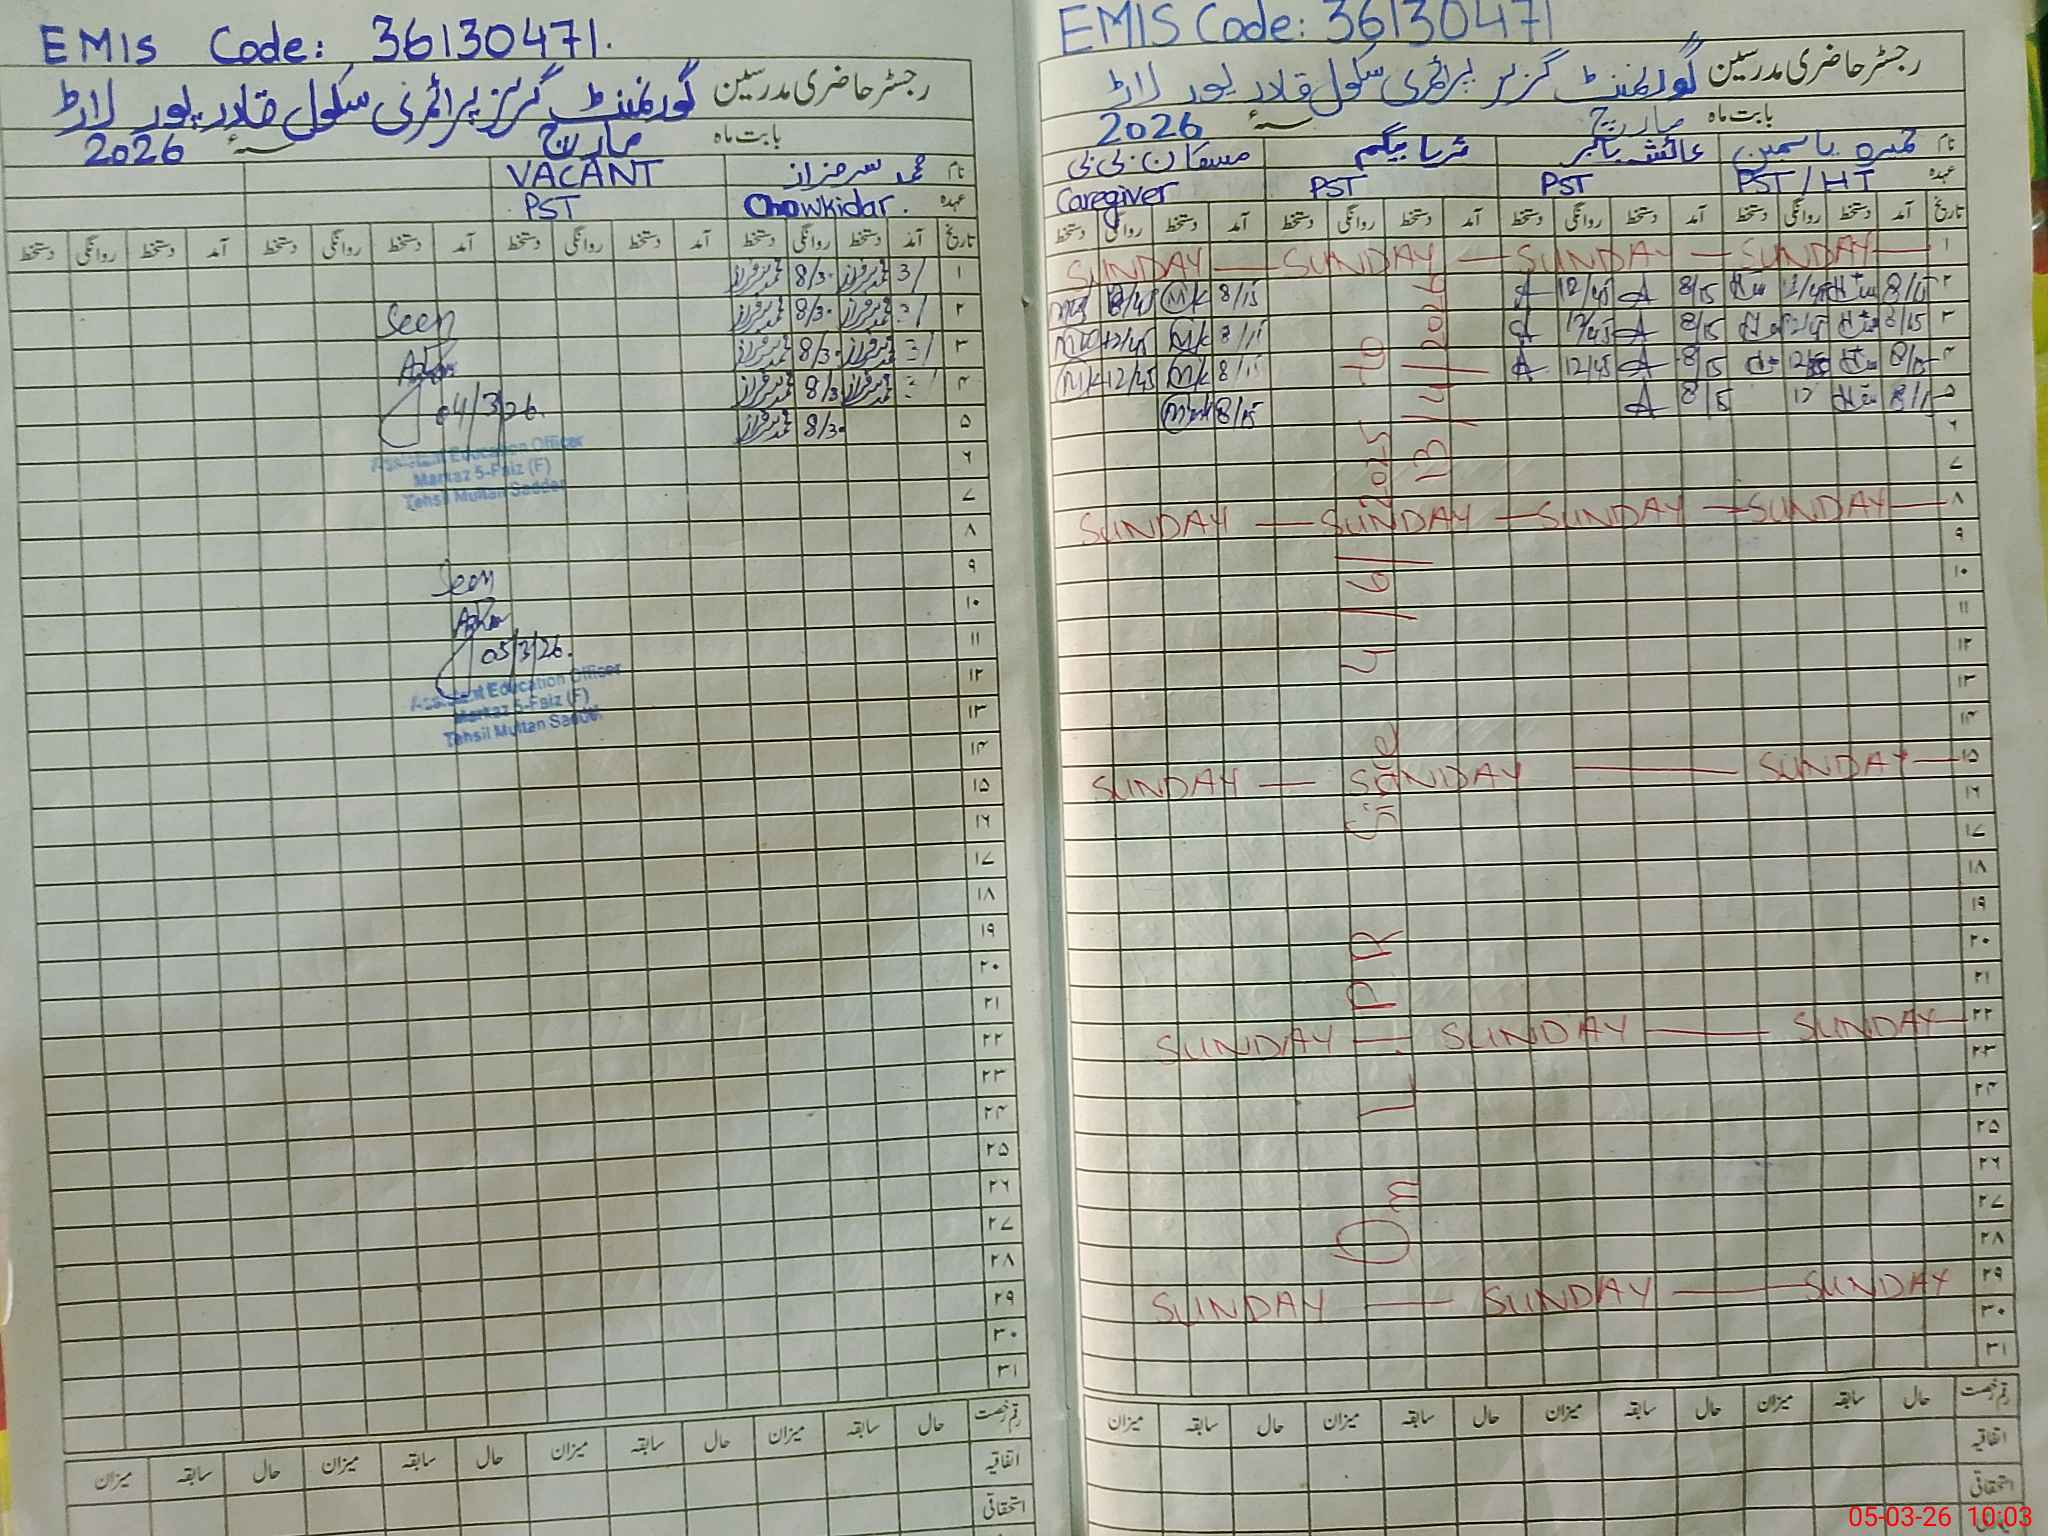 EMIS Code: 36130471.
رجسٹر حاضری مدرسین گورنمنٹ گرلز پرائمری سکول قادر پور لاڑ
بابت ماہ مارچ سنہ 2026
نام محمد سرفراز VACANT
عہدہ Chowkidar. PST
تاریخ آمد دستخط روانگی دستخط آمد دستخط روانگی دستخط آمد دستخط روانگی دستخط آمد دستخط روانگی دستخط
۱ 3/ محمد سرفراز 8/3. محمد سرفراز
۲ محمد سرفراز 8/3. محمد سرفراز
Seen
۳ 3/ محمد سرفراز 8/3. محمد سرفراز
۴ محمد سرفراز 8/3 محمد سرفراز
04/3/26.
۵ 8/3. محمد سرفراز
Assistant Education Officer
Markaz 5-Faiz (F)
Tehsil Multan Sadder
۶
۷
۸
۹
Seen
۱۰
۱۱
05/3/26.
Assistant Education Officer
Markaz 5-Faiz (F)
Tehsil Multan Sadder
۱۲
۱۳
۱۴
۱۵
۱۶
۱۷
۱۸
۱۹
۲۰
۲۱
۲۲
۲۳
۲۴
۲۵
۲۶
۲۷
۲۸
۲۹
۳۰
۳۱
رقم رخصت حال سابقہ میزان حال سابقہ میزان حال سابقہ میزان حال سابقہ میزان
اتفاقیہ
استحقاقی
EMIS Code: 36130471
رجسٹر حاضری مدرسین گورنمنٹ گرلز پرائمری سکول قادر پور لاڑ
بابت ماہ مارچ سنہ 2026
نام یاسمین عائشہ ثریا بیگم مسکان بی بی
عہدہ PST/HT PST PST Caregiver
تاریخ آمد دستخط روانگی دستخط آمد دستخط روانگی دستخط آمد دستخط روانگی دستخط آمد دستخط روانگی دستخط
۱ SUNDAY — SUNDAY — SUNDAY — SUNDAY
۲ 8/15 A 12/45 A 8/15 MK
۳ 8/15 A 12/45 A 8/15 MK 12/45
۴ 8/15 A 12/45 A 8/15 MK 12/45 MK
۵ 12 8/15 A 8/15
۶
۷
۸ SUNDAY — SUNDAY — SUNDAY — SUNDAY
۹
۱۰
۱۱
۱۲
۱۳
۱۴
۱۵ SUNDAY — SUNDAY — SUNDAY
۱۶
۱۷
۱۸
۱۹
۲۰
۲۱
۲۲ SUNDAY — SUNDAY — SUNDAY
۲۳
۲۴
۲۵
۲۶
۲۷
۲۸
۲۹ SUNDAY — SUNDAY — SUNDAY
۳۰
۳۱
On L.PR Since 4/6/2025 To
13/4/2026
رقم رخصت حال سابقہ میزان حال سابقہ میزان حال سابقہ میزان حال سابقہ میزان
اتفاقیہ
استحقاقی
05-03-26 10:03